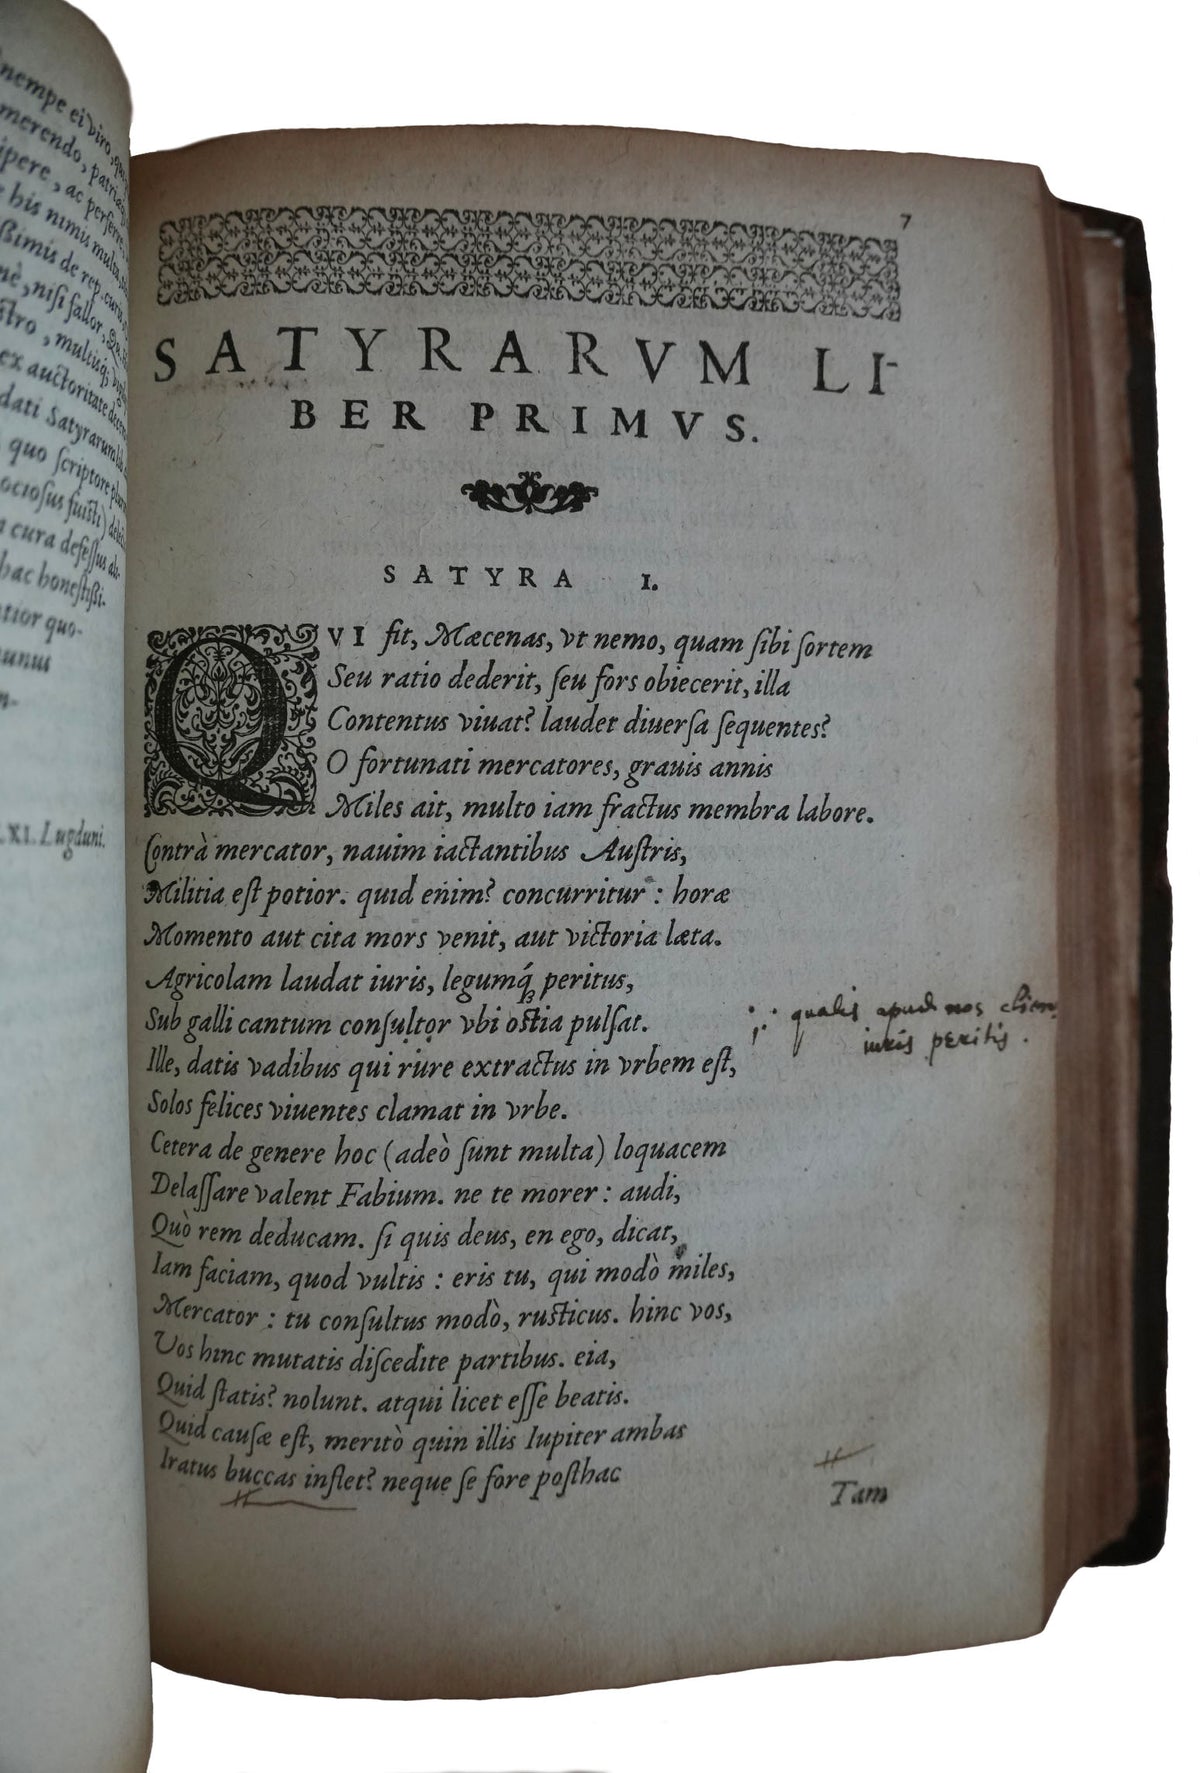 nempe ei viro,
merendo, patriam
ipere, ac perferre
his nimis multa
ßimis de rep. cura
nè, nisi fallor,
stro, multisq́;
ex auctoritate
dati Satyrarum
quo scriptore
ociosus fuisti)
cura defessus
hac honestißi-
tior quo-
munus
.XI. Lugduni.
7
SATYRARVM LI-
BER PRIMVS.
SATYRA I.
QVI fit, Mæcenas, vt nemo, quam sibi sortem
Seu ratio dederit, seu fors obiecerit, illa
Contentus viuat? laudet diuersa sequentes?
O fortunati mercatores, grauis annis
Miles ait, multo iam fractus membra labore.
Contrà mercator, nauim iactantibus Austris,
Militia est potior. quid enim? concurritur : horæ
Momento aut cita mors venit, aut victoria læta.
Agricolam laudat iuris, legumq́; peritus,
Sub galli cantum consultor vbi ostia pulsat.
∵ qualis apud nos
iuris peritis.
Ille, datis vadibus qui rure extractus in vrbem est,
Solos felices viuentes clamat in vrbe.
Cetera de genere hoc (adeò sunt multa) loquacem
Delassare valent Fabium. ne te morer : audi,
Quò rem deducam. si quis deus, en ego, dicat,
Iam faciam, quod vultis : eris tu, qui modò miles,
Mercator : tu consultus modò, rusticus. hinc vos,
Vos hinc mutatis discedite partibus. eia,
Quid statis? nolunt. atqui licet esse beatis.
Quid causæ est, meritò quin illis Iupiter ambas
Iratus buccas inflet? neque se fore posthac
Tam